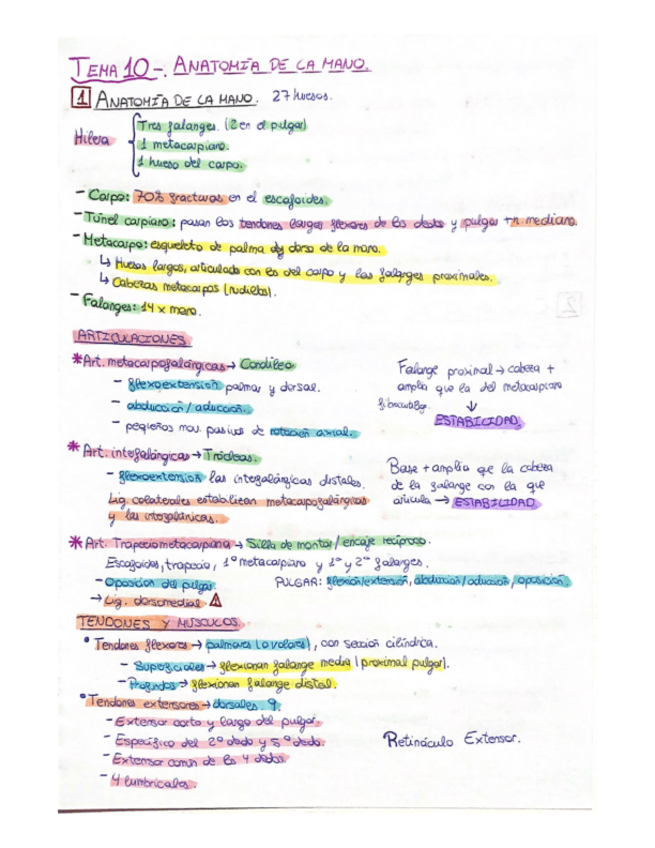 TEMA 10-. ANATOMÍA DE LA MANO.
1 ANATOMÍA DE LA MANO. 27 huesos.
Hilera
Tres falanges. (2 en el pulgar)
1 metacarpiano.
1 hueso del carpo.
- Carpo: 70% fracturas en el escafoides.
- Túnel carpiano: pasan los tendones largos flexores de los dedos y pulgar + n. mediano.
- Metacarpo: esqueleto de palma y dorso de la mano.
↳ Huesos largos, articulado con los del carpo y las falanges proximales.
↳ Cabezas metacarpos (nudillos).
- Falanges: 14 x mano.
2
ARTICULACIONES
* Art. metacarpofalángicas → Condíleo
- flexoextensión palmar y dorsal.
- abducción / aducción.
- pequeños mov. pasivos de rotación axial.
Falange proximal → cabeza +
amplia que la del metacarpiano
↓
ESTABILIDAD
* Art. interfalángicas → Trócleas.
- flexoextensión las interfalángicas distales.
Lig. colaterales estabilizan metacarpofalángicas
y las interfalángicas.
Base + amplia que la cabeza
de la falange con la que
articula → ESTABILIDAD
* Art. Trapeciometacarpiana → Silla de montar / encaje recíproco.
Escafoides, trapecio, 1º metacarpiano y 1ª y 2ª falanges.
- Oposición del pulgar.
PULGAR: flexión/extensión, abducción/aducción, oposición.
→ Lig. dorsomedial ⚠
TENDONES Y MUSCULOS
• Tendones flexores → palmares (o volares), con sección cilíndrica.
- Superficiales → flexionan falange media (proximal pulgar).
- Profundos → flexionan falange distal.
• Tendones extensores → dorsales 9.
- Extensor corto y largo del pulgar.
- Específico del 2º dedo y 5º dedo.
- Extensor común de los 4 dedos.
- 4 lumbricales.
Retináculo Extensor.